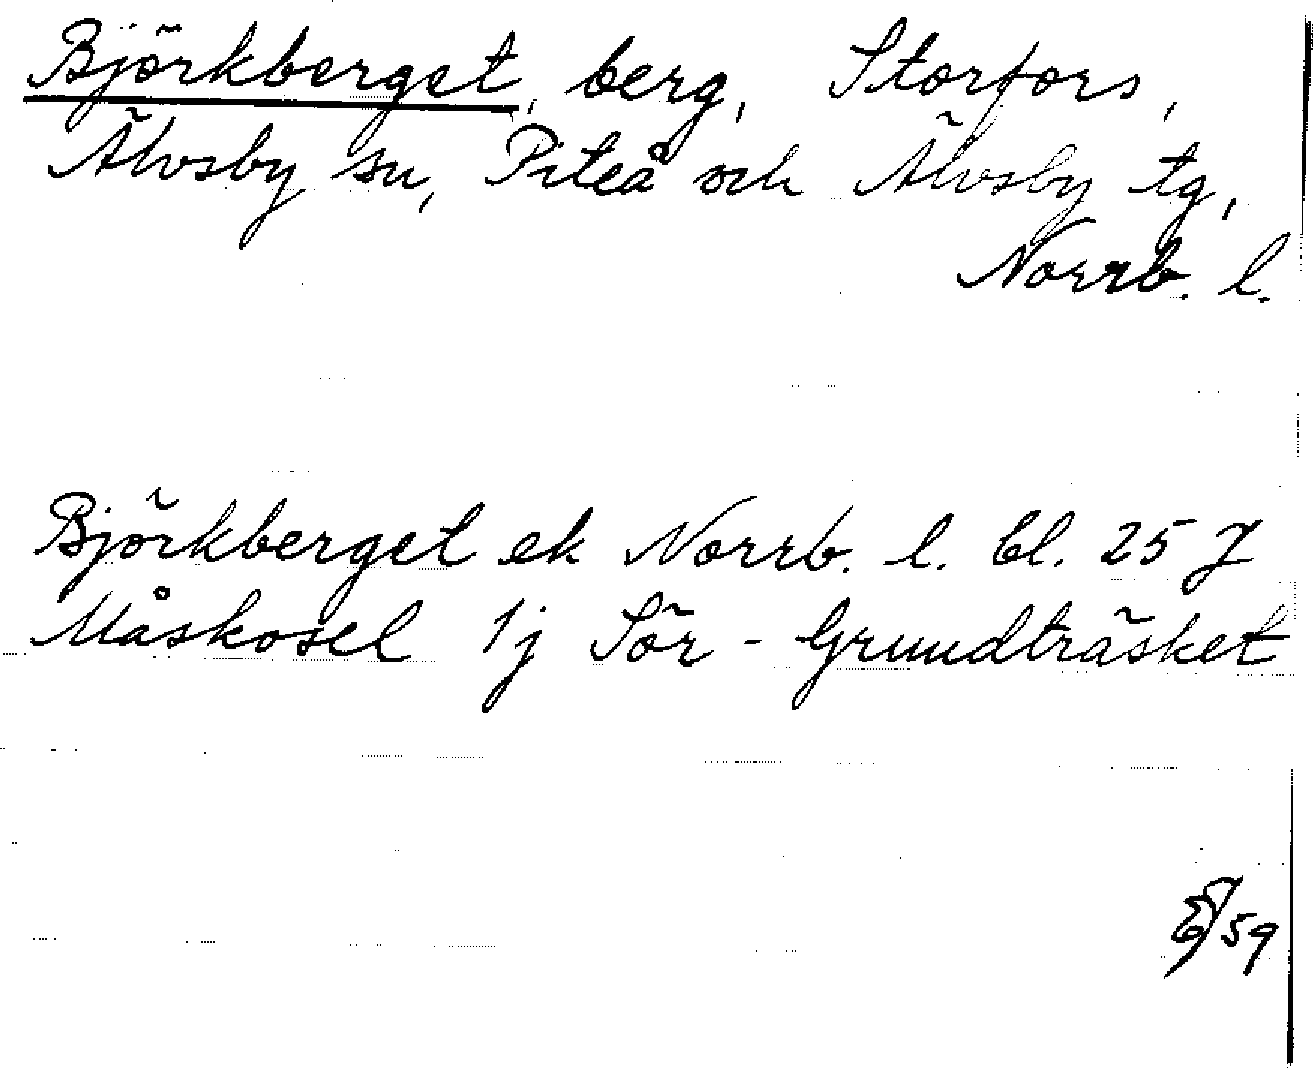 Björkberget, berg, Storfors,
Älvsby sn, Piteå och Älvsby tg,
Norrb. l.
Björkberget ek Norrb. l. bl. 25 J
Måskosel 1j Sör-Grundträsket
/59